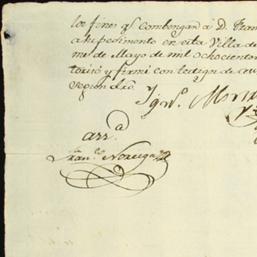 los fines qe. combengan á D. Fran
a su pedimento en esta Villa de
me de Mayo de mil ochocientos
torisó y firmé con testigos de
Ygno. Mora
arra.
Franco. Noriega